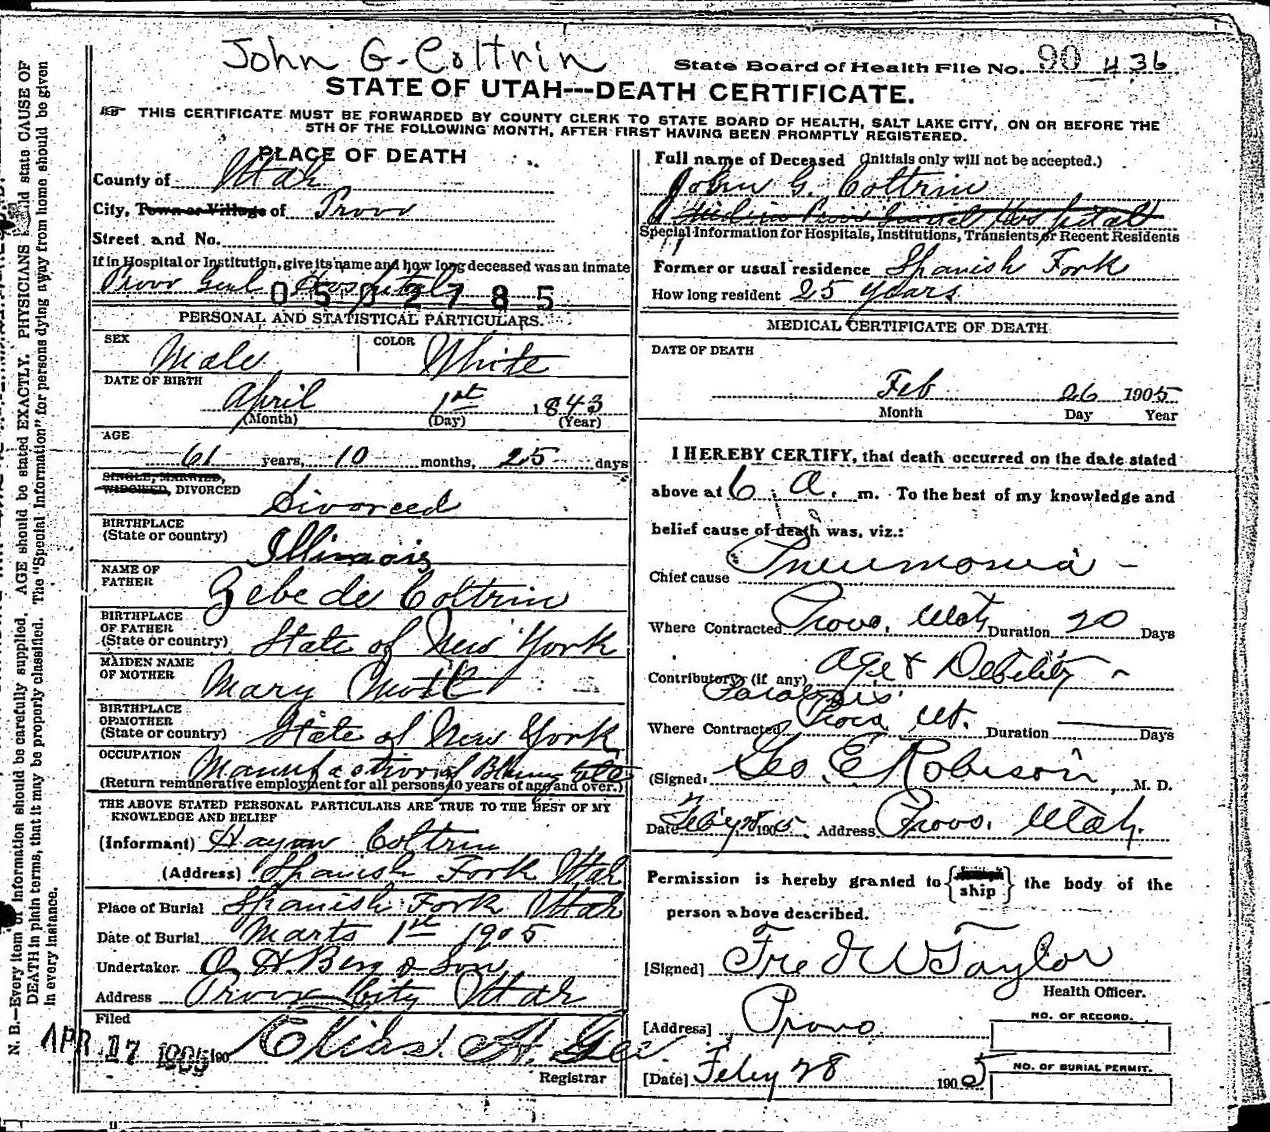 John G. Coltrin
State Board of Health File No. 90 436
STATE OF UTAH---DEATH CERTIFICATE.
THIS CERTIFICATE MUST BE FORWARDED BY COUNTY CLERK TO STATE BOARD OF HEALTH, SALT LAKE CITY, ON OR BEFORE THE
5TH OF THE FOLLOWING MONTH, AFTER FIRST HAVING BEEN PROMPTLY REGISTERED.
PLACE OF DEATH
County of Utah
City, Town or Village of Provo
Street and No.
If in Hospital or Institution, give its name and how long deceased was an inmate
Provo Genl Hospital
0502785
PERSONAL AND STATISTICAL PARTICULARS.
SEX Male COLOR White
DATE OF BIRTH
April 1st 1843
(Month) (Day) (Year)
AGE
61 years, 10 months, 25 days
SINGLE, MARRIED,
WIDOWED, DIVORCED Divorced
BIRTHPLACE
(State or country) Illinois
NAME OF
FATHER Zebede Coltrin
BIRTHPLACE
OF FATHER
(State or country) State of New York
MAIDEN NAME
OF MOTHER Mary Mott
BIRTHPLACE
OF MOTHER
(State or country) State of New York
OCCUPATION
(Return remunerative employment for all persons 10 years of age and over.)
THE ABOVE STATED PERSONAL PARTICULARS ARE TRUE TO THE BEST OF MY
KNOWLEDGE AND BELIEF
(Informant) Coltrin
(Address) Spanish Fork Utah
Place of Burial Spanish Fork Utah
Date of Burial 1st 1905
Undertaker O. H. Berg & Son
Address Provo City Utah
Filed
APR 17 1905 190 Elias A. Gee.
Registrar
Full name of Deceased (Initials only will not be accepted.)
John G. Coltrin
Hospital
Special Information for Hospitals, Institutions, Transients or Recent Residents
Former or usual residence Spanish Fork
How long resident 25 years
MEDICAL CERTIFICATE OF DEATH
DATE OF DEATH
Feb 26 1905
Month Day Year
I HEREBY CERTIFY, that death occurred on the date stated
above at 6. a. m. To the best of my knowledge and
belief cause of death was, viz.:
Chief cause Pneumonia
Where Contracted Provo, Utah Duration 20 Days
Contributory (if any) Age & Debility
Paralysis
Where Contracted Provo Ut. Duration Days
(Signed) Geo E Robison M. D.
Date Feby 28 1905, Address Provo. Utah.
Permission is hereby granted to ship the body of the
person above described.
[Signed] Fred W Taylor
Health Officer.
[Address] Provo
[Date] Feby 28 1905
NO. OF RECORD.
NO. OF BURIAL PERMIT.
N. B.—Every item of information should be carefully supplied. AGE should be stated EXACTLY. PHYSICIANS should state CAUSE OF
DEATH in plain terms, that it may be properly classified. The "Special Information" for persons dying away from home should be given
in every instance.